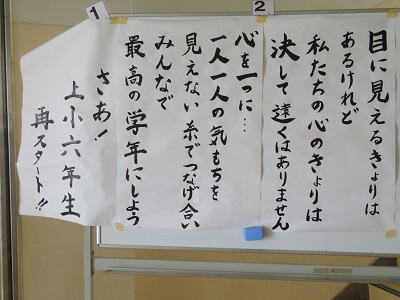 2
目に見えるきょりは
あるけれど
私たちの心のきょりは
決して遠くはありません
1
心を一つに…
一人一人の気もちを
見えない糸でつなげ合い
みんなで
最高の学年にしよう
さあ!
上小六年生
再スタート!!